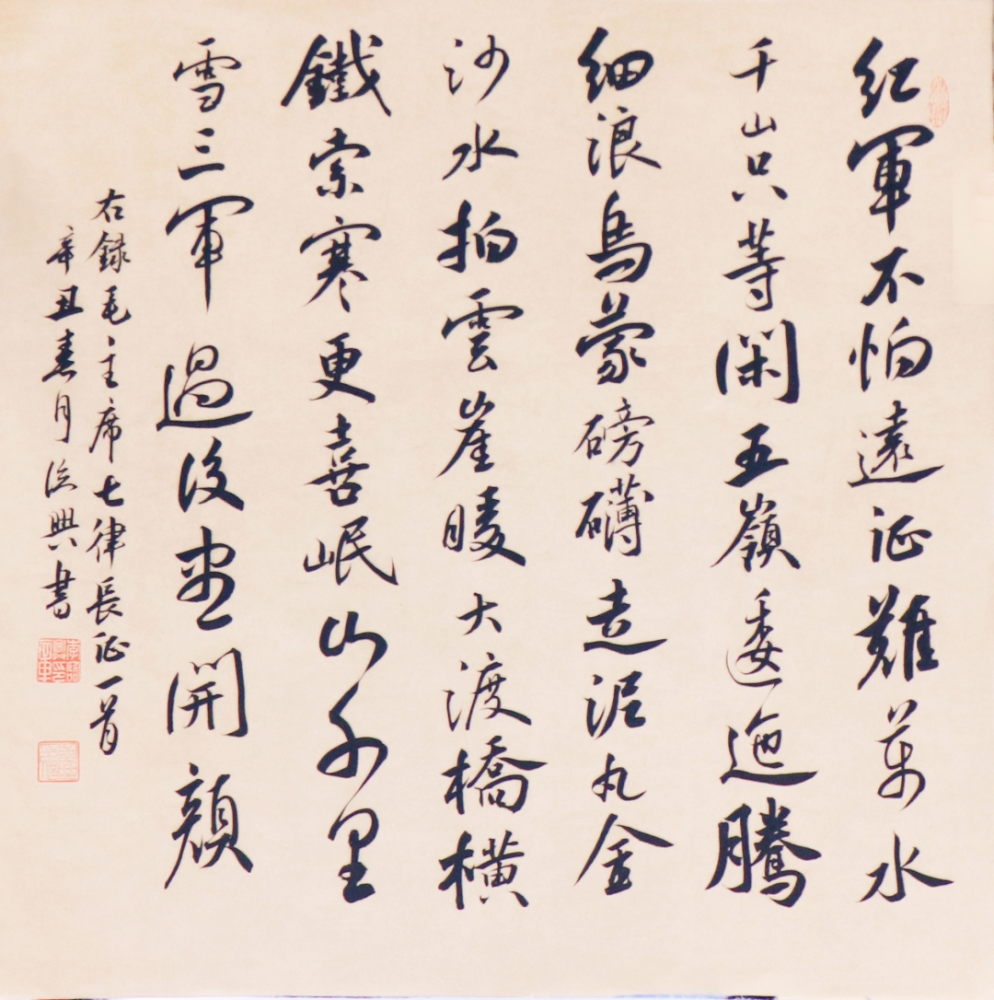 紅軍不怕遠征難萬水
千山只等閑五嶺逶迤騰
細浪烏蒙磅礴走泥丸金
沙水拍雲崖暖大渡橋橫
鐵索寒更喜岷山千里
雪三軍過後盡開顏
右録毛主席七律長征一首
辛丑春月 興書